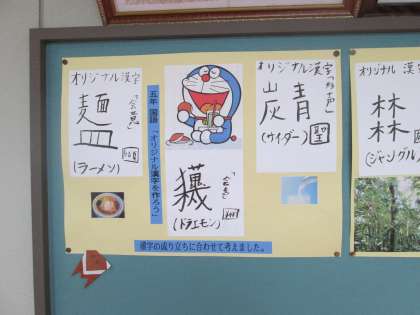 オリジナル漢字
「会意」
麺
皿
(ラーメン)
五年 国語 「オリジナル漢字を作ろう」
「会意」
(ドラエモン)
オリジナル漢字
「形声」
炭青
(サイダー)
聖
オリジナル漢字
林
林
(ジャングル)
漢字の成り立ちに合わせて考えました。